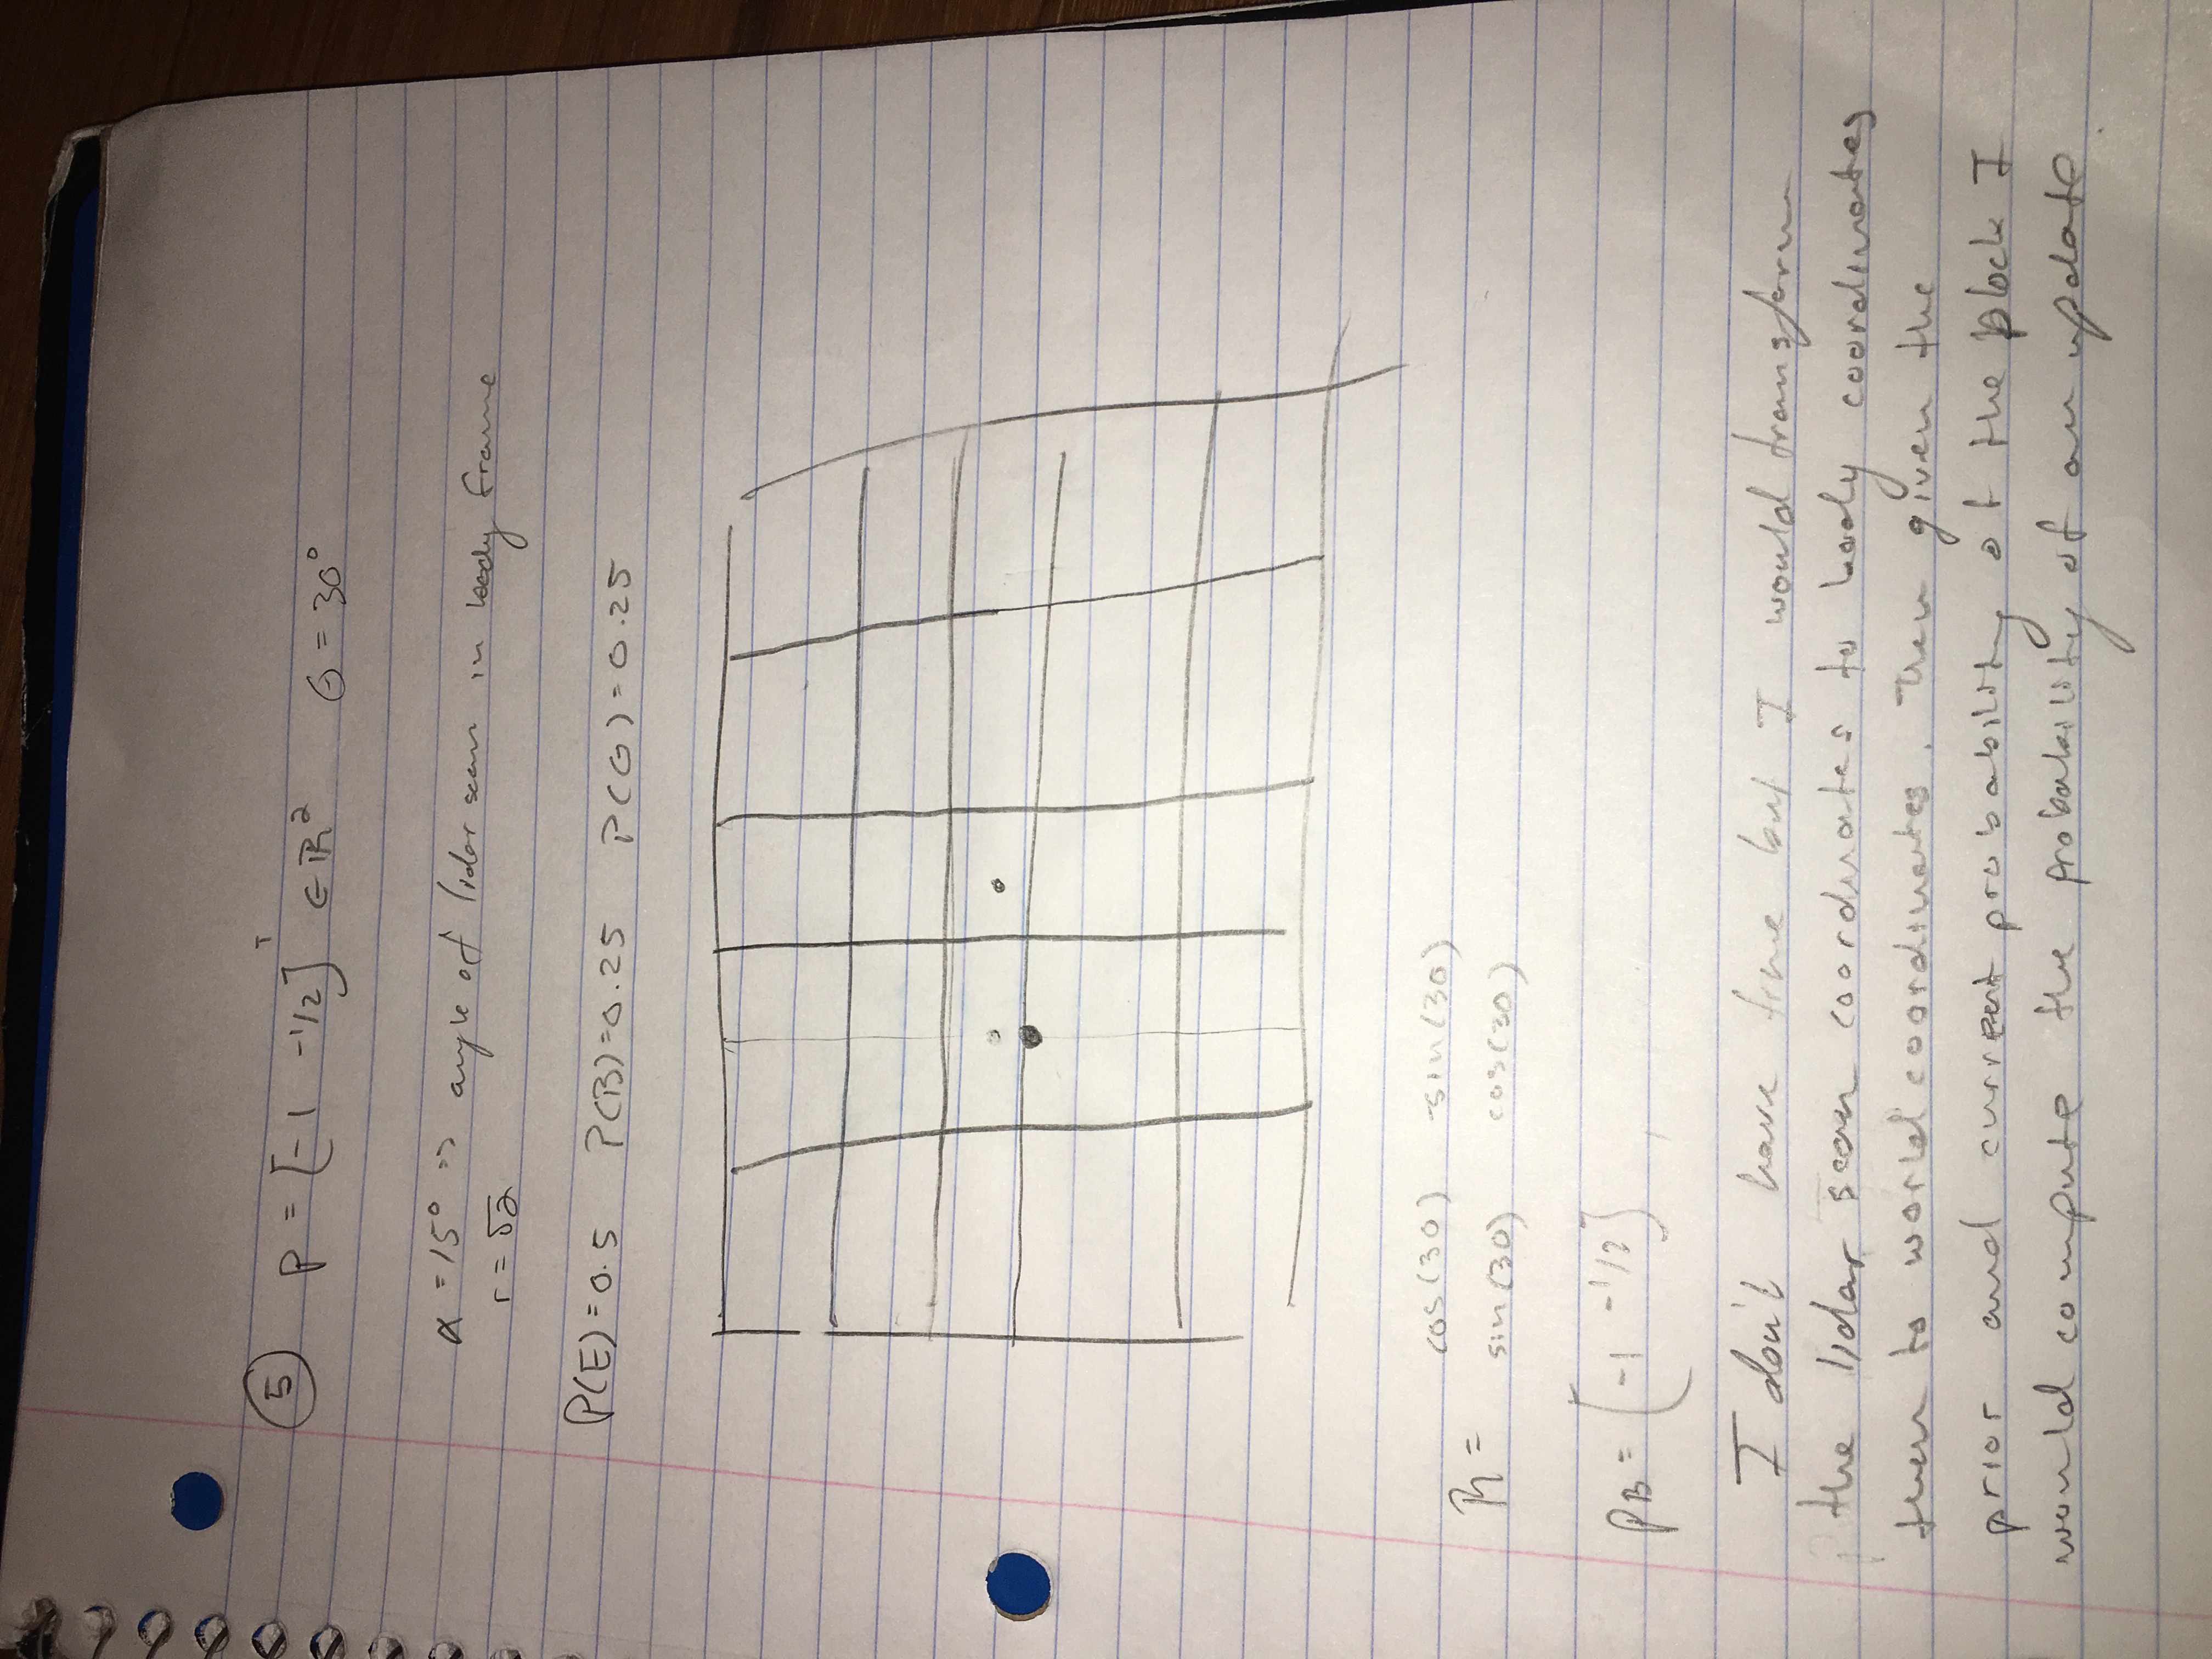 5 p = [-1 -1/2]ᵀ ∈ ℝ² Θ = 30°
α = 15° => angle of lidar scan in body frame
r = √2
P(E)=0.5 P(B)=0.25 P(G)=0.25
cos(30) -sin(30)
R =
sin(30) cos(30)
pB = [-1 -1/2]
I don't have time but I would transform
the lidar scan coordinates to body coordinates
then to world coordinates. Then given the
prior and current probability of the block I
would compute the probability of an update.